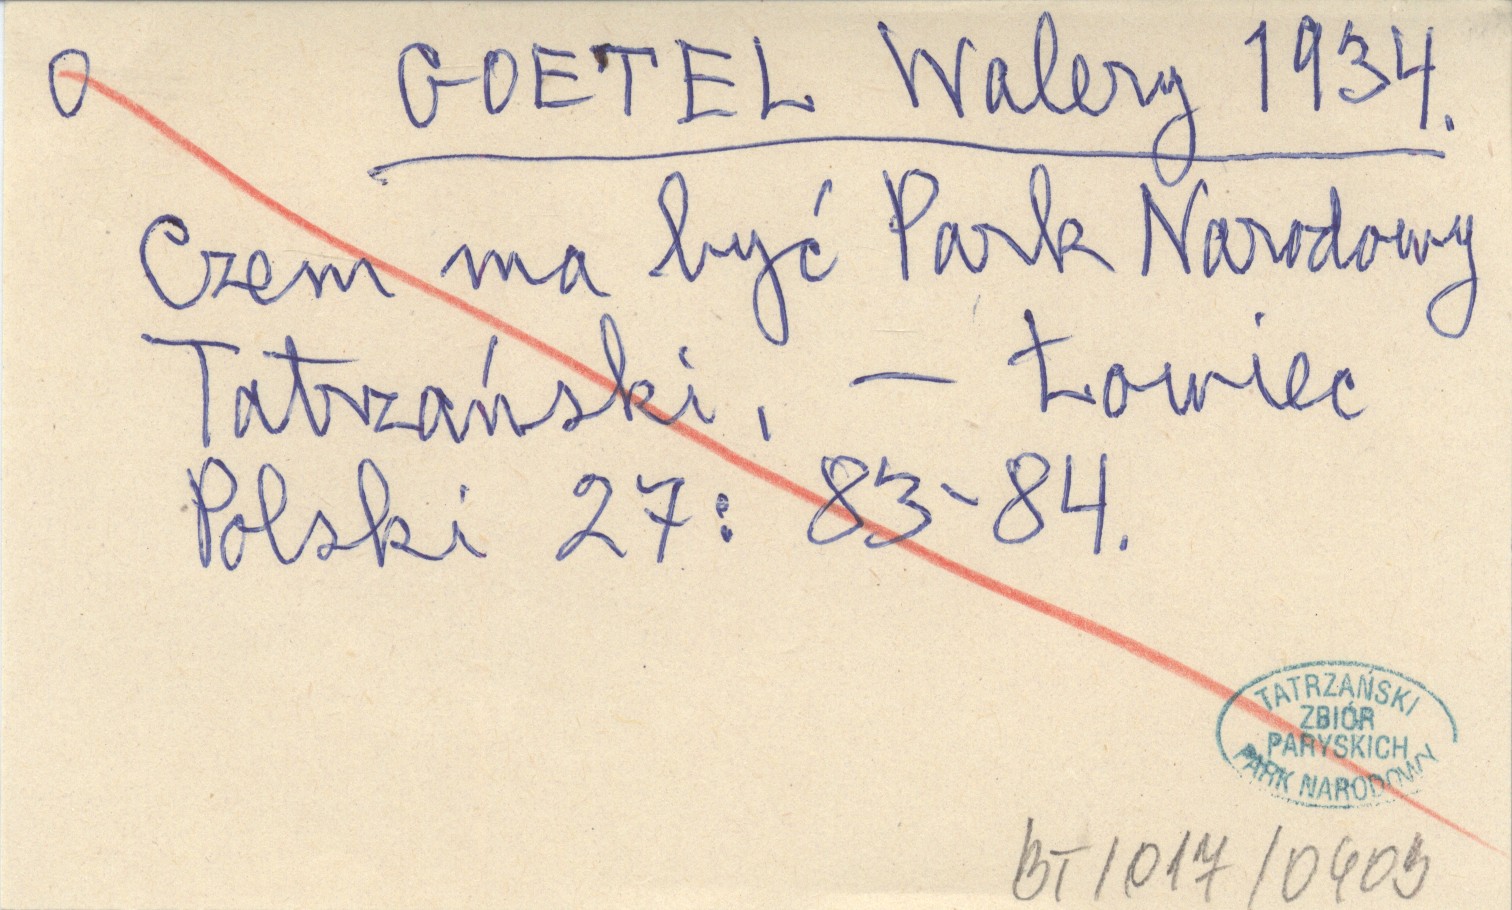 O GOETEL Walery 1934.
Czem ma być Park Narodowy
Tatrzański, — Łowiec
Polski 27: 83-84.
TATRZAŃSKI
ZBIÓR
PARYSKICH
PARK NARODOWY
BT/017/0403